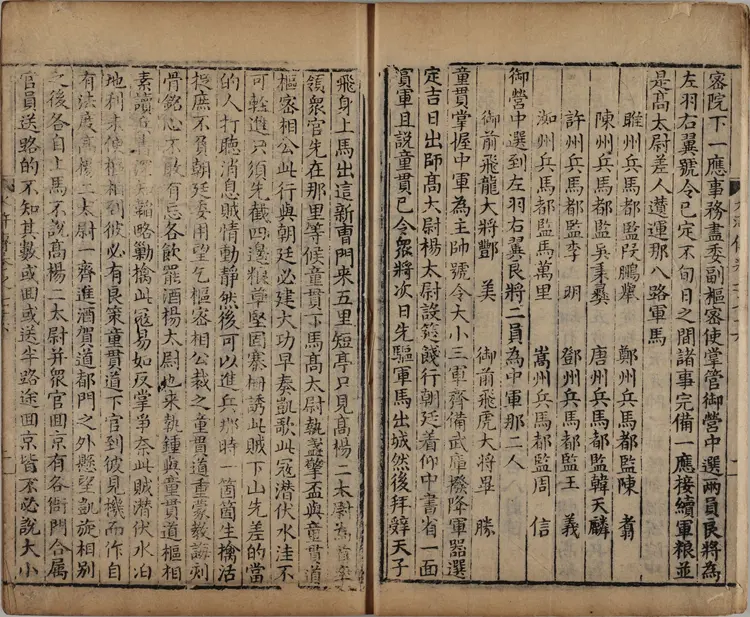 密院下一應事務盡委副樞密使掌管御營中選兩員良將為
左羽右翼號令已定不旬日之間諸事完備一應接續軍粮並
是高太尉差人儹運那八路軍馬
睢州兵馬都監叚鵬舉 鄭州兵馬都監陳翥
陳州兵馬都監吳秉彞 唐州兵馬都監韓天麟
許州兵馬都監李明 鄧州兵馬都監王義
洳州兵馬都監馬萬里 嵩州兵馬都監周信
御營中選到左羽右翼良將二員為中軍那二人
御前飛龍大將酆美 御前飛虎大將畢勝
童貫掌握中軍為主帥號令大小三軍齊備武庫撥降軍器選
定吉日出師高大尉楊大尉設筵餞行朝廷着仰中書省一面
賞軍且說童貫已令衆將次日先驅軍馬出城然後拜辭天子
飛身上馬出這新曹門來五里短亭只見高楊二太尉為首率
領衆官先在那里等候童貫下馬高太尉執盞擎盃與童貫道
樞密相公此行與朝廷必建大功早奏凱歌此寇潜伏水洼不
可輕進只須先截四邊粮草堅固寨柵誘此賊下山先差的當
的人打聽消息賊情動静然後可以進兵那時一箇箇生擒活
捉庶不負朝廷委用望乞樞密相公裁之童貫道重蒙教誨刻
骨銘心不敢有忘各飲罷酒楊大尉也來執鍾與童貫道樞相
素讀 韜略勦擒此冦易如反掌爭奈此賊潜伏水泊
地利未便樞相到彼必有良策童貫道下官到彼見機而作自
有法度高楊二太尉一齊進酒賀道都門之外懸望凱旋相別
之後各自上馬不說高楊二太尉并衆官囬京有各衙門合属
官員送路的不知其數或囬或送半路途囬京皆不必說大小